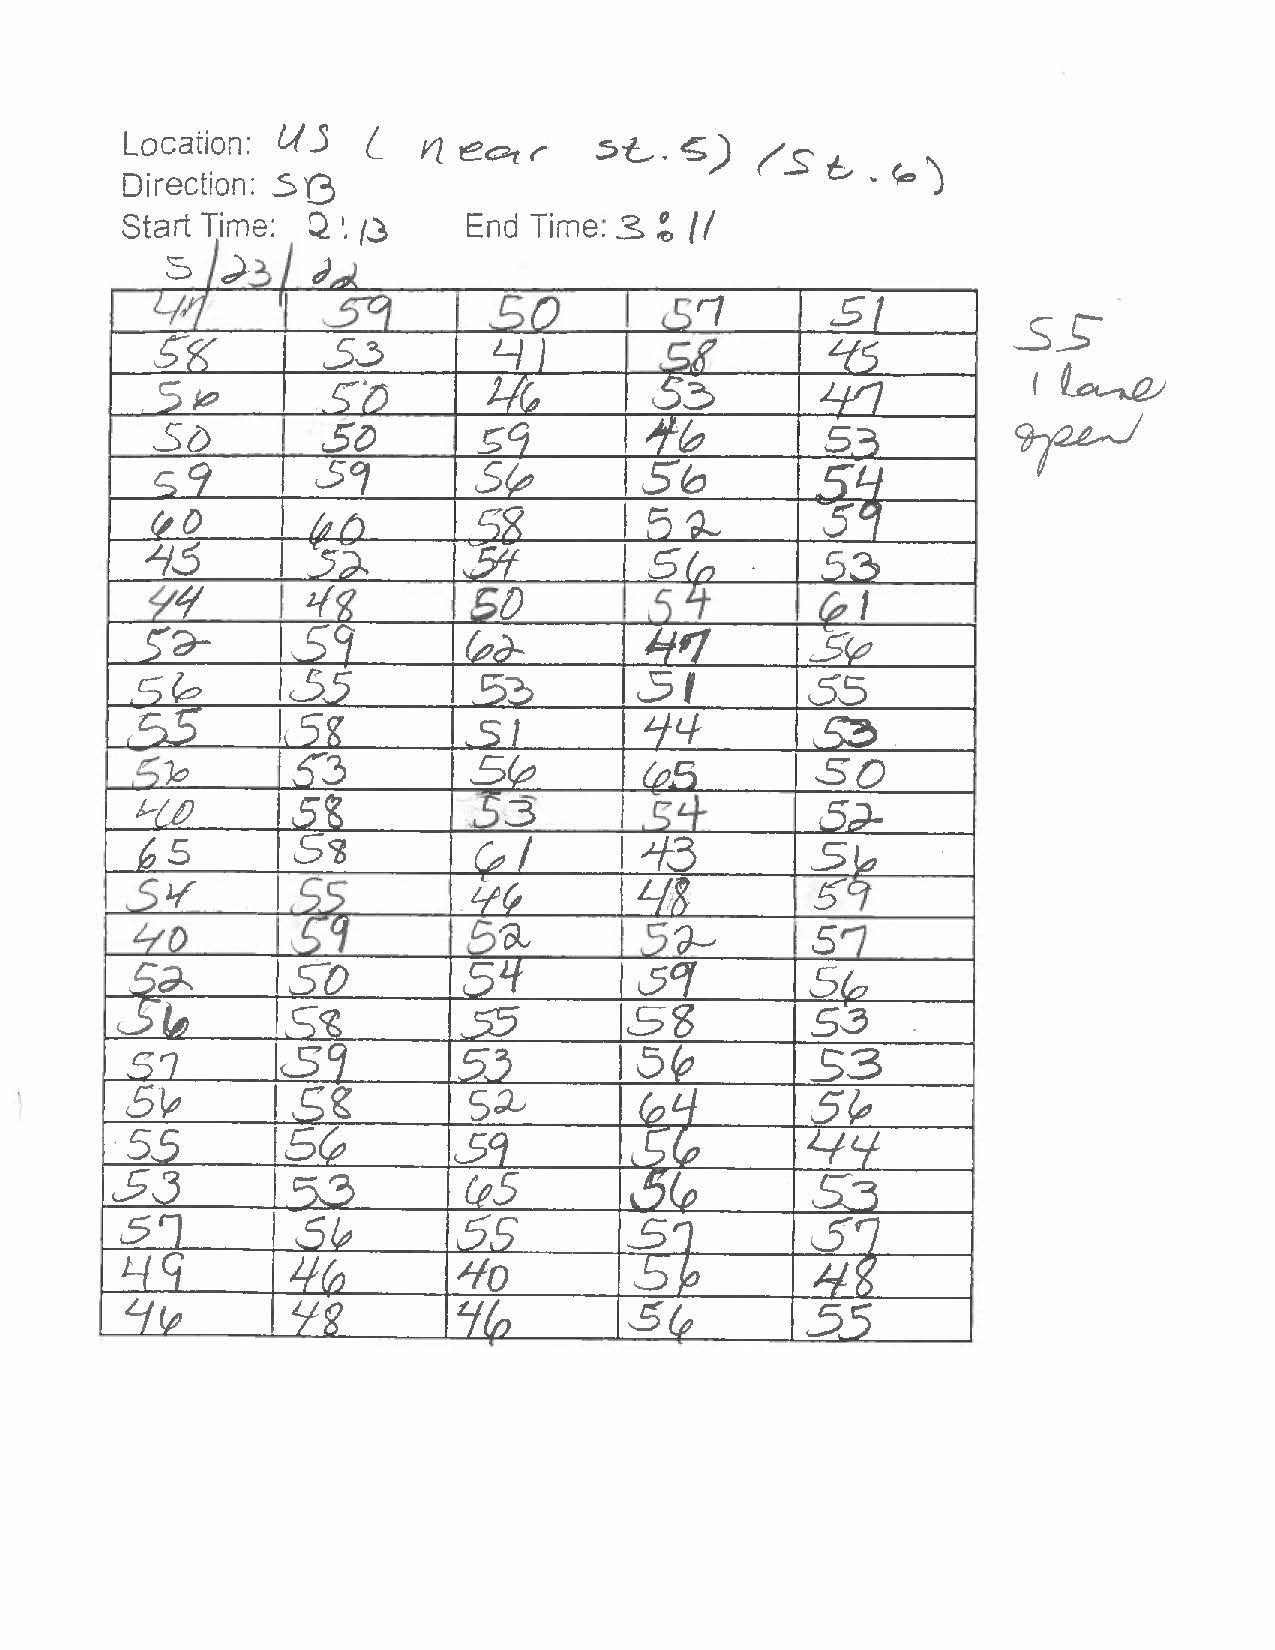 Location: US ( near st. 5) (St. 6)
Direction: SB
Start Time: 2:13 End Time: 3:11
5/23/22
47 59 50 57 51
58 53 41 58 45
56 50 46 53 47
50 50 59 46 53
59 59 56 56 54
60 60 58 52 59
45 52 54 56 53
44 48 50 54 61
52 59 62 47 56
56 55 53 51 55
55 58 51 44 53
56 53 56 65 50
40 58 53 54 52
65 58 61 43 56
54 55 46 48 59
40 59 52 52 57
52 50 54 59 56
56 58 55 58 53
57 59 53 56 53
56 58 52 64 56
55 56 59 56 44
53 53 65 56 53
57 56 55 57 57
49 46 40 56 48
46 48 46 56 55
55
1 lane
open